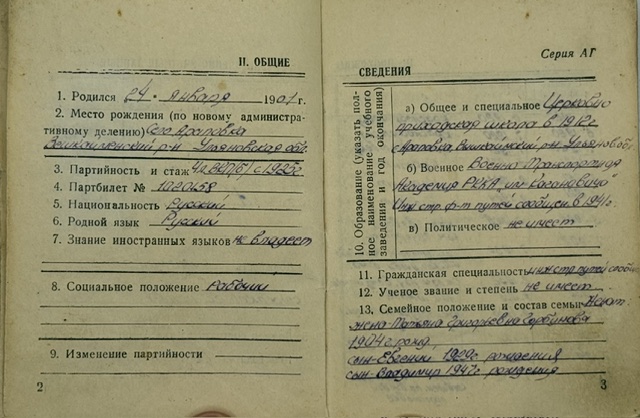 II. ОБЩИЕ
1. Родился 24 января 1901 г.
2. Место рождения (по новому администра-
тивному делению) Село Араповка
Вешкаймский р-н Ульяновская обл.
3. Партийность и стаж Чл. ВКП/б/ с 1925г
4. Партбилет № 1020458
5. Национальность Русский
6. Родной язык Русский
7. Знание иностранных языков не владеет
8. Социальное положение рабочий
9. Изменение партийности
2
Серия АГ
СВЕДЕНИЯ
10. Образование (указать пол-
ное наименование учебного
заведения и год окончания)
а) Общее и специальное Церковно
приходская школа в 1912г
с Араповка, Вешкаймский р-н Ульяновской обл
б) Военное Военно Транспортная
Академия РККА им Кагановича
Инж стр. ф-т путей сообщен. в 1941г
в) Политическое не имеет
11. Гражданская специальность инж стр путей сообщ
12. Ученое звание и степень не имеет
13. Семейное положение и состав семьи Женат
жена Татьяна Григорьевна
1904 г рожд,
сын Евгений 1929г рождения
сын Владимир 1947г рождения
3